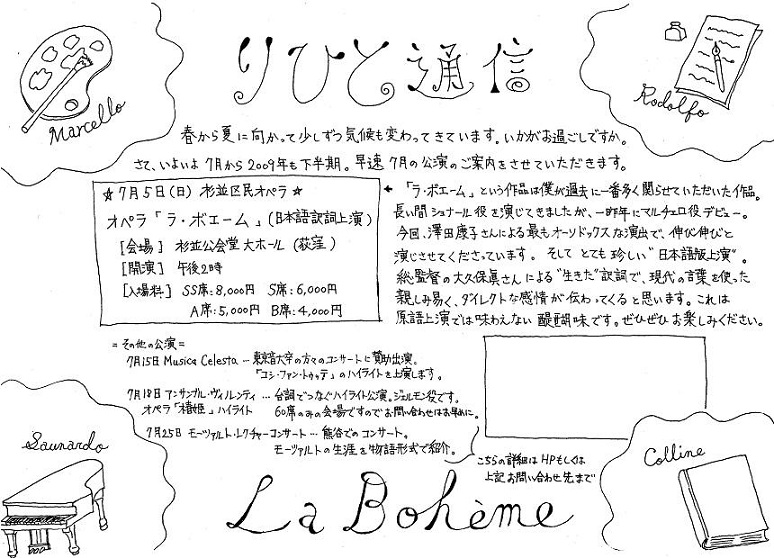 りひと通信
Marcello
Rodolfo
春から夏に向かって少しずつ気候も変わってきています。いかがお過ごしですか。
さて、いよいよ7月から2009年も下半期。早速7月の公演のご案内をさせていただきます。
☆7月5日(日) 杉並区民オペラ☆
オペラ「ラ・ボエーム」(日本語訳詞上演)
[会場] 杉並公会堂 大ホール (荻窪)
[開演] 午後2時
[入場料] SS席:8,000円 S席:6,000円
A席:5,000円 B席:4,000円
← 「ラ・ボエーム」という作品は僕が過去に一番多く関らせていただいた作品。
長い間ショナール役を演じてきましたが、一昨年にマルチェロ役デビュー。
今回、澤田康子さんによる最もオーソドックスな演出で、伸び伸びと
演じさせてくださっています。そしてとても珍しい"日本語版上演"。
総監督の大久保眞さんによる"生きた"訳詞で、現代の言葉を使った
親しみ易く、ダイレクトな感情が伝わってくると思います。これは
原語上演では味わえない醍醐味です。ぜひぜひお楽しみください。
=その他の公演=
7月15日 Musica Celesta … 東京音大卒の方々のコンサートに賛助出演。
「コシ・ファン・トゥッテ」のハイライトを上演します。
7月18日 アンサンブル・ヴィルレンティ … 台詞でつなぐハイライト公演。ジェルモン役です。
オペラ「椿姫」ハイライト 60席のみの会場ですのでお問い合わせはお早めに。
7月25日 モーツァルト・レクチャーコンサート … 熊谷でのコンサート。
モーツァルトの生涯を物語形式で紹介。
こちらの詳細はHPもしくは
上記お問い合わせ先まで
Saunardo
Colline
La Bohème